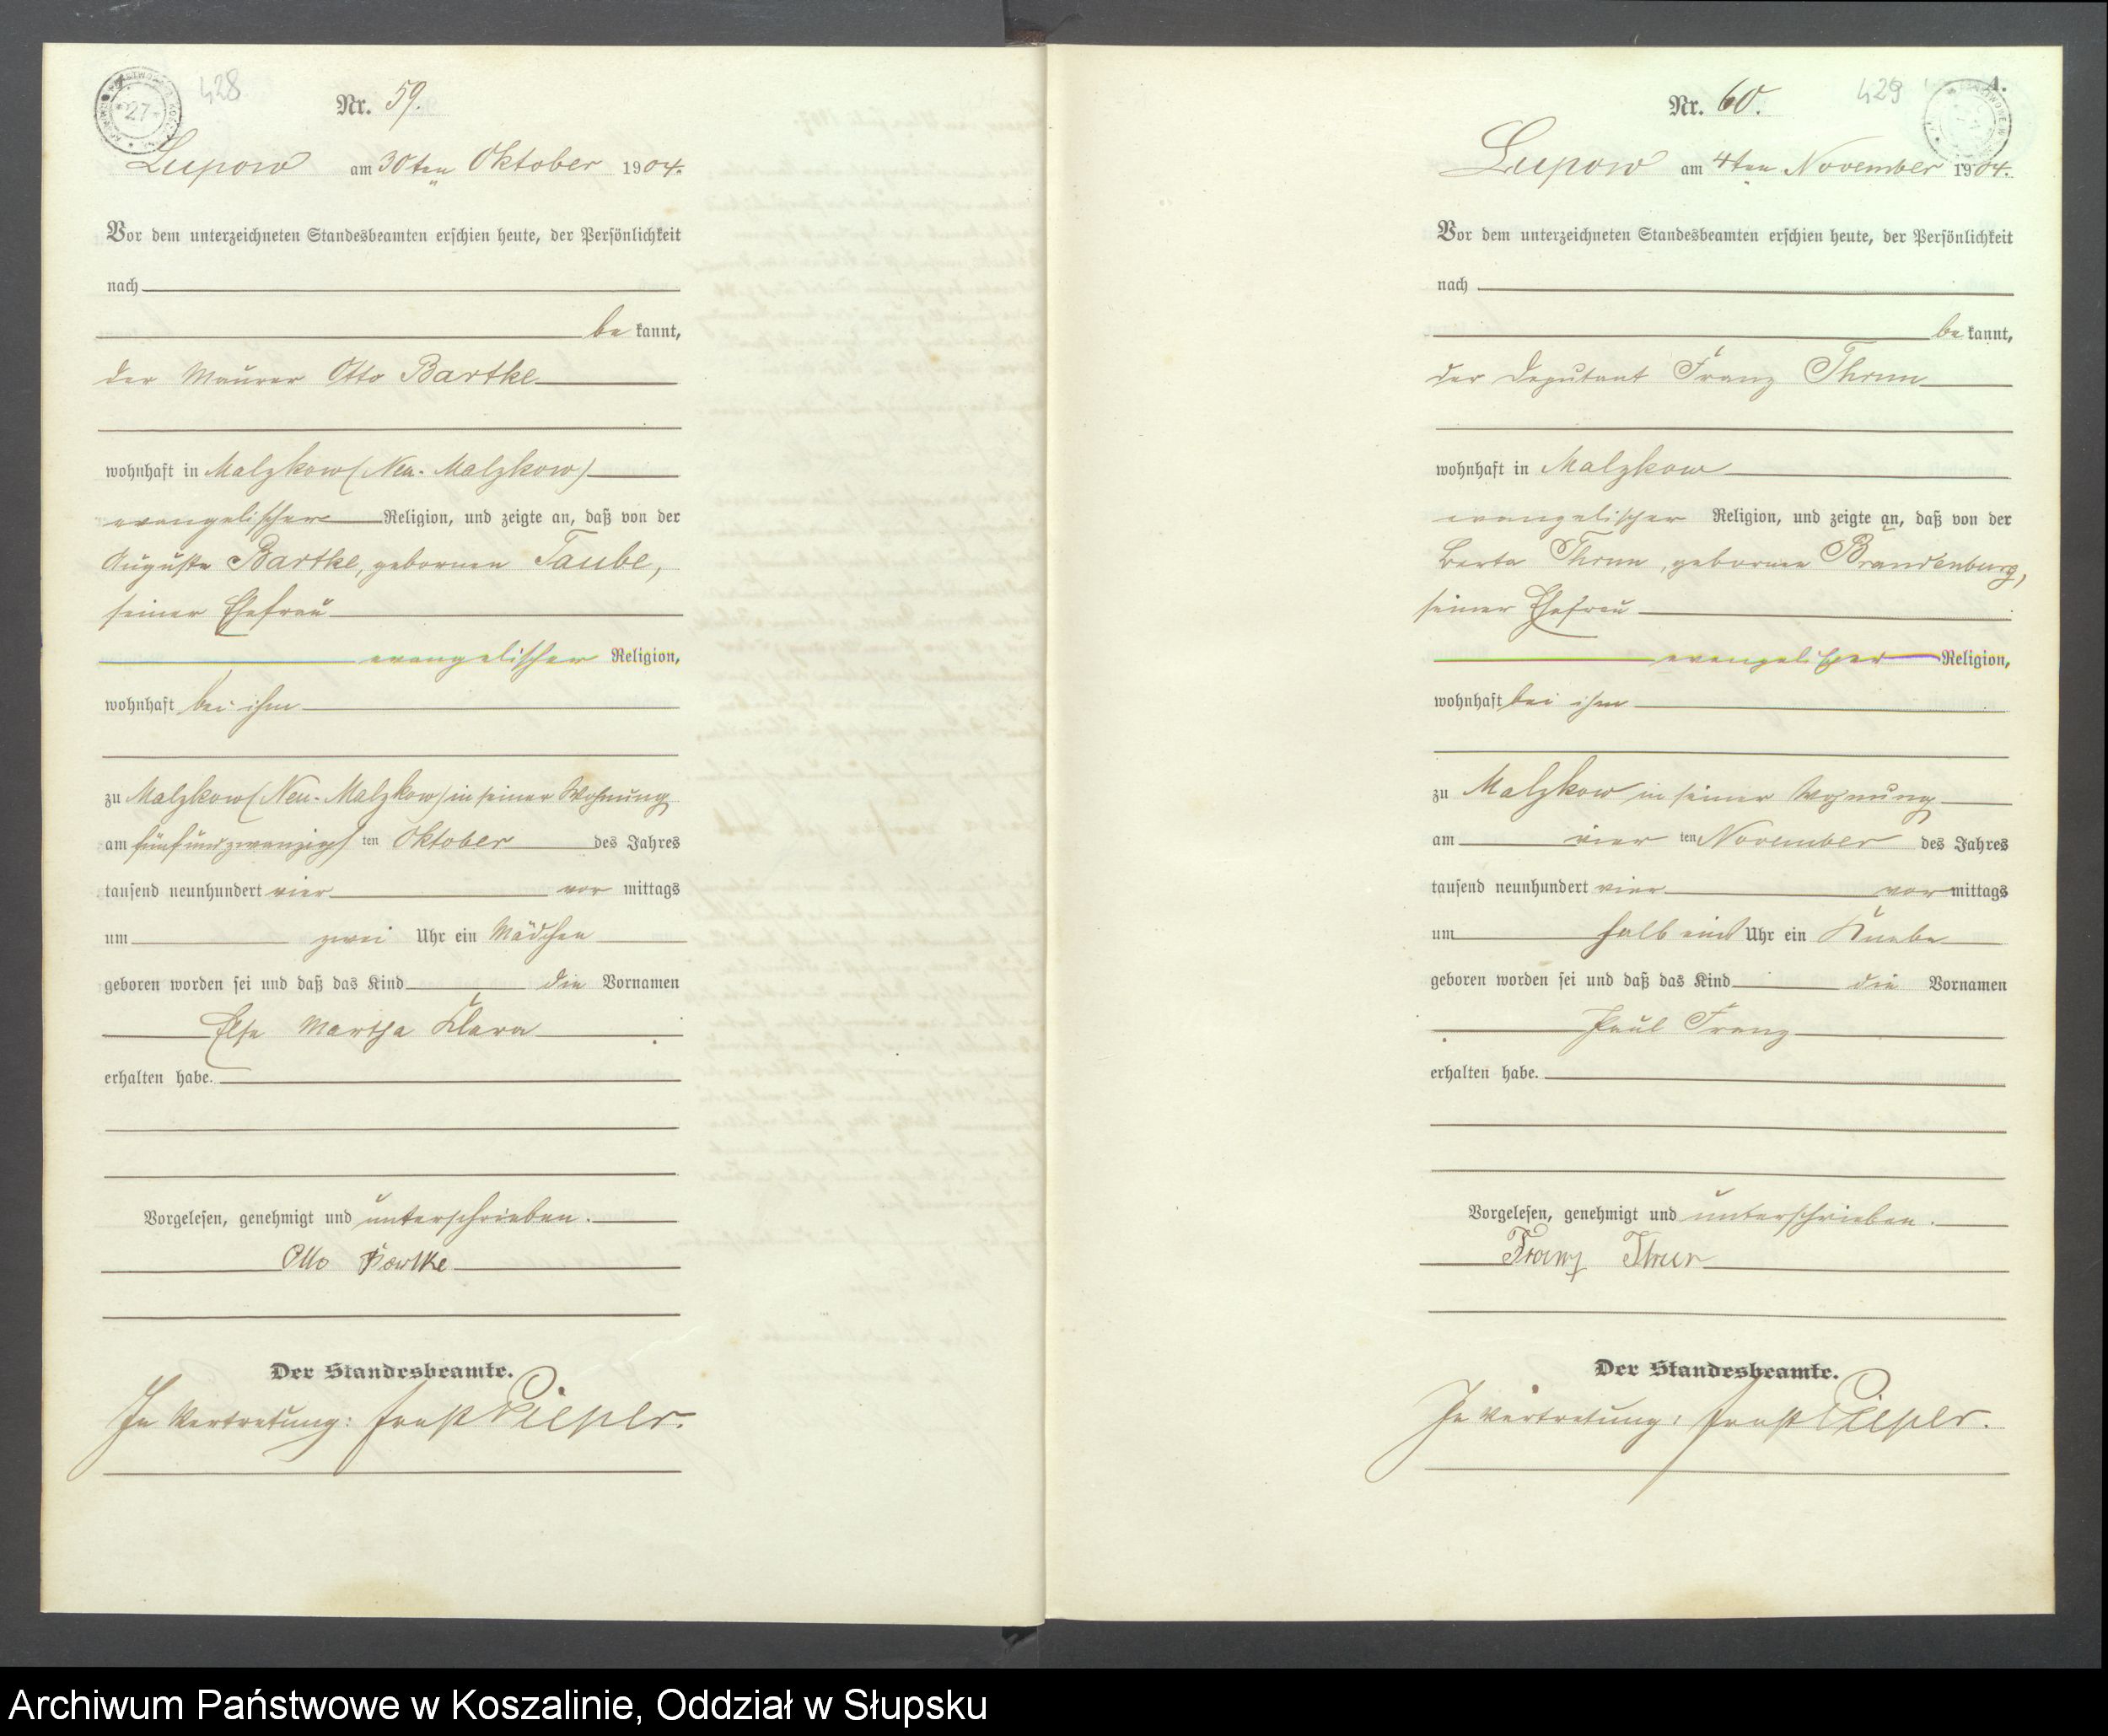 428
Nr. 59.
Lupow am 30ten Oktober 1904.
Vor dem unterzeichneten Standesbeamten erschien heute, der Persönlichkeit
nach
be kannt,
der Maurer Otto Bartke
wohnhaft in Malzkow (Neu-Malzkow)
evangelischer Religion, und zeigte an, daß von der
Auguste Bartke, geborenen Taube,
seiner Ehefrau
evangelischer Religion,
wohnhaft bei ihm
zu Malzkow (Neu-Malzkow) in seiner Wohnung
am fünfundzwanzigs ten Oktober des Jahres
tausend neunhundert vier vor mittags
um zwei Uhr ein Mädchen
geboren worden sei und daß das Kind die Vornamen
Else Martha Klara
erhalten habe.
Vorgelesen, genehmigt und unterschrieben.
Otto Bartke
Der Standesbeamte.
In Vertretung: Ernst Pieper.
429
A.
Nr. 60.
Lupow am 4ten November 1904.
Vor dem unterzeichneten Standesbeamten erschien heute, der Persönlichkeit
nach
be kannt,
der Deputant Franz Thrun
wohnhaft in Malzkow
evangelischer Religion, und zeigte an, daß von der
Berta Thrun, geborenen Brandenburg,
seiner Ehefrau
evangelischer Religion,
wohnhaft bei ihm
zu Malzkow in seiner Wohnung
am vier ten November des Jahres
tausend neunhundert vier vor mittags
um halb eins Uhr ein Knabe
geboren worden sei und daß das Kind die Vornamen
Paul Franz
erhalten habe.
Vorgelesen, genehmigt und unterschrieben.
Franz Thrun
Der Standesbeamte.
In Vertretung: Ernst Pieper.
Archiwum Państwowe w Koszalinie, Oddział w Słupsku